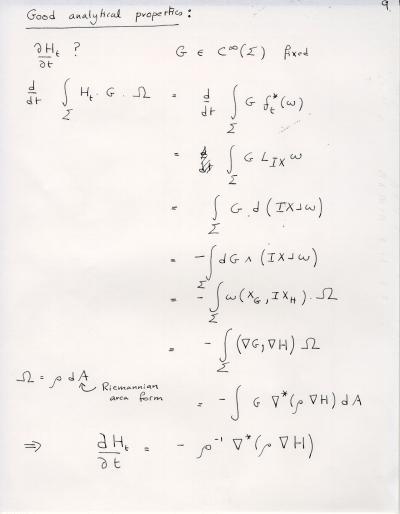 9
Good analytical properties:
∂H_t/∂t ? G ∈ C^∞(Σ) fixed
d/dt ∫_Σ H_t · G · Ω = d/dt ∫_Σ G f_t^*(ω)
= ∫_Σ G L_{IX} ω
= ∫_Σ G . d (IX⌟ω)
= - ∫_Σ dG ∧ (IX⌟ω)
= - ∫_Σ ω(X_G, IX_H) . Ω
= - ∫_Σ (∇G, ∇H) Ω
Ω = ρ dA
Riemannian
area form
= - ∫ G ∇^*(ρ ∇H) dA
⇒ ∂H_t/∂t = - ρ^{-1} ∇^*(ρ ∇H)